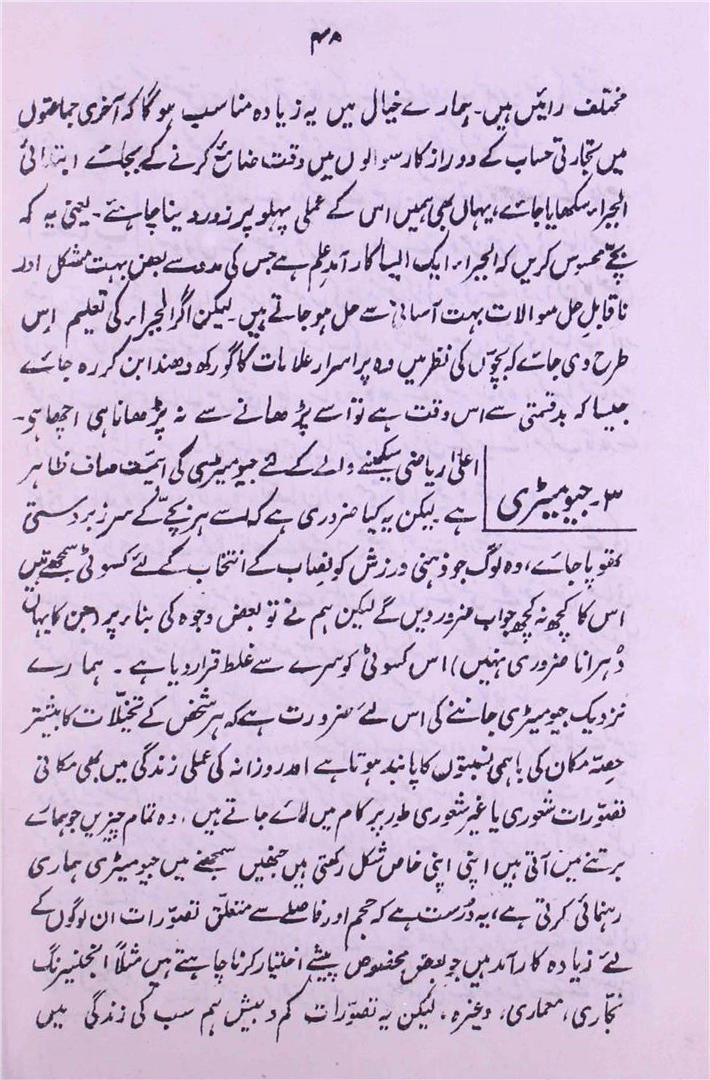 ۴۸
مختلف رائیں ہیں۔ ہمارے خیال میں یہ زیادہ مناسب ہوگا کہ آخری جماعتوں
میں تجارتی حساب کے دوراز کار سوالوں میں وقت ضائع کرنے کے بجائے ابتدائی
الجبرا، سکھایا جائے، یہاں بھی ہمیں اس کے عملی پہلو پر زور دینا چاہئے۔ یعنی یہ کہ
بچّے محسوس کریں کہ الجبرا، ایک ایسا کار آمد علم ہے جس کی مدد سے بعض بہت مشکل اور
ناقابل حل سوالات بہت آسانی سے حل ہو جاتے ہیں۔ لیکن اگر الجبرا، کی تعلیم اس
طرح دی جائے کہ بچّوں کی نظر میں وہ پر اسرار علامات کا گورکھ دھندا بن کر رہ جائے
جیسا کہ بدقسمتی سے اس وقت ہے تو اسے پڑھانے سے نہ پڑھانا ہی اچھا ہی۔
۳۔ جیومیٹری
اعلیٰ ریاضی سیکھنے والے کے لئے جیومیٹری کی اہمیت صاف ظاہر
ہے لیکن یہ کیا ضروری ہے کہ اسے ہر بچّے کے سر زبردستی
تھوپا جائے، وہ لوگ جو ذہنی ورزش کو نصاب کے انتخاب کے لئے کسوٹی سمجھتے ہیں
اس کا کچھ نہ کچھ جواب ضرور دیں گے لیکن ہم نے تو بعض وجوہ کی بناء پر (جن کا یہاں
دُہرانا ضروری نہیں) اس کسوٹی کو سرے سے غلط قرار دیا ہے۔ ہمارے
نزدیک جیومیٹری جاننے کی اس لئے ضرورت ہے کہ ہر شخص کے تخیلّات کا بیشتر
حصّہ مکان کی باہمی نسبتوں کا پابند ہوتا ہے اور روزانہ کی عملی زندگی میں بھی مکانی
تصوّرات شعوری یا غیر شعوری طور پر کام میں لائے جاتے ہیں، وہ تمام چیزیں جو ہمارے
برتنے میں آتی ہیں اپنی اپنی خاص شکل رکھتی ہیں جنھیں سمجھنے میں جیومیٹری ہماری
رہنمائی کرتی ہے، یہ دُرست ہے کہ حجم اور فاصلے سے متعلق تصوّرات ان لوگوں کے
لئے زیادہ کار آمد ہیں جو بعض مخصوص پیشے اختیار کرنا چاہتے ہیں مثلاً انجنیئرنگ
نجّاری، معماری، وغیرہ، لیکن یہ تصوّرات کم و بیش ہم سب کی زندگی میں